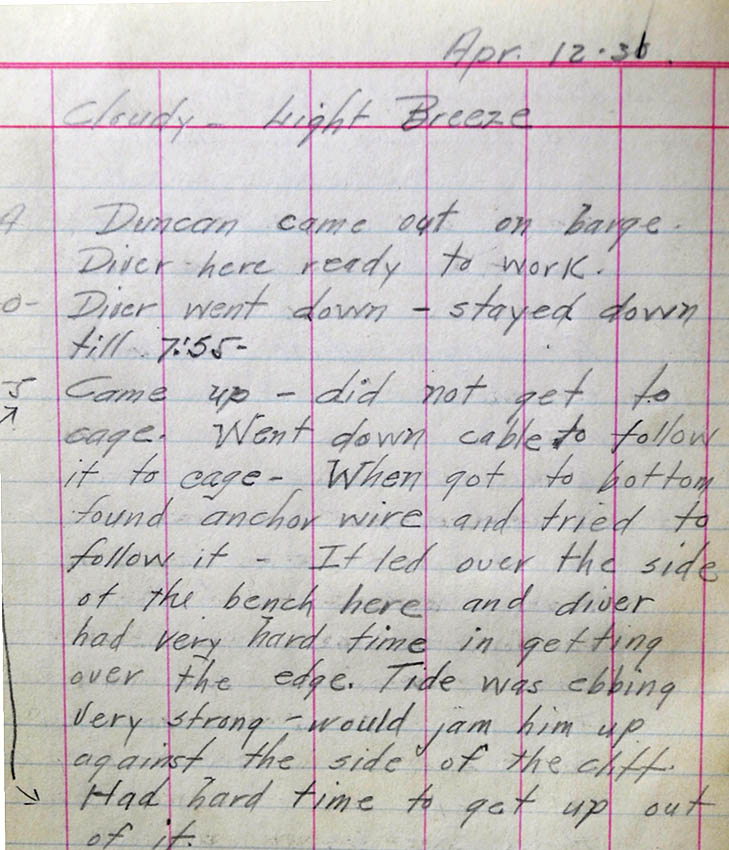 Apr. 12·36.
Cloudy - Light Breeze
Duncan came out on barge.
Diver here ready to work.
0- Diver went down - stayed down
till 7:55-
5 Came up - did not get to
cage. Went down cable to follow
it to cage - When got to bottom
found anchor wire and tried to
follow it - It led over the side
of the bench here and diver
had very hard time in getting
over the edge. Tide was ebbing
very strong - would jam him up
against the side of the cliff.
Had hard time to get up out
of it.